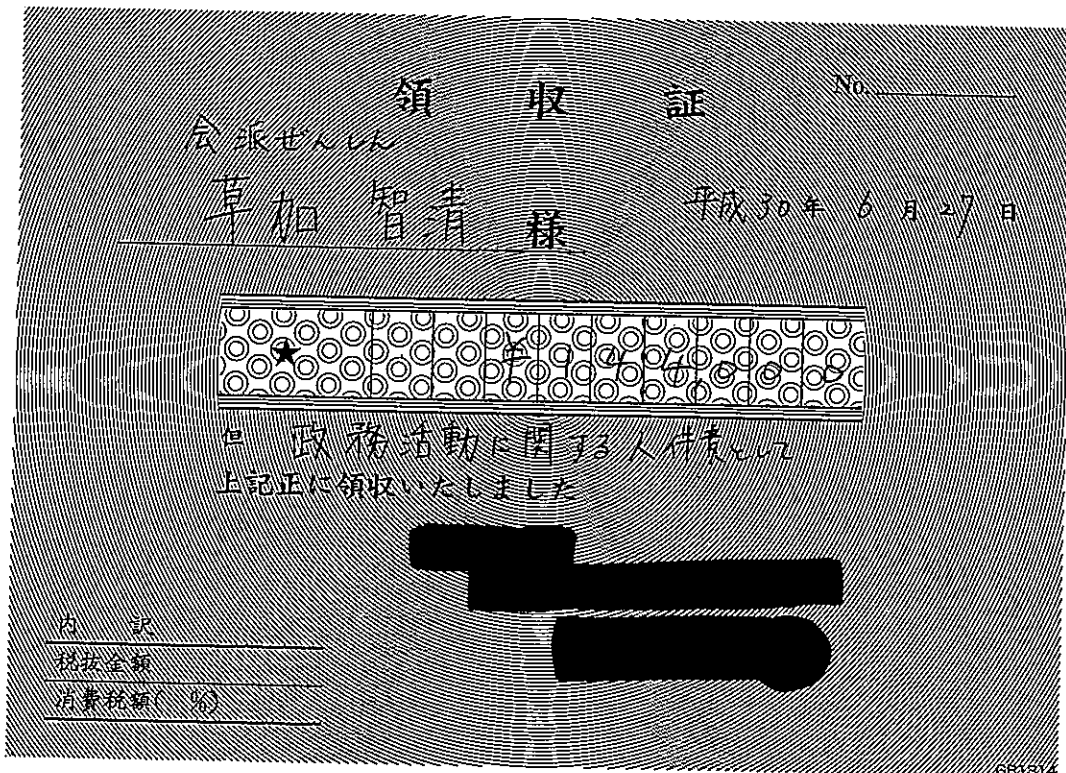 領収証 No.
会派ぜんしん
草加 智清 様 平成30年 6月27日
★ ¥144,000
但 政務活動に関する人件費として
上記正に領収いたしました
内 訳
税抜金額
消費税額( %)